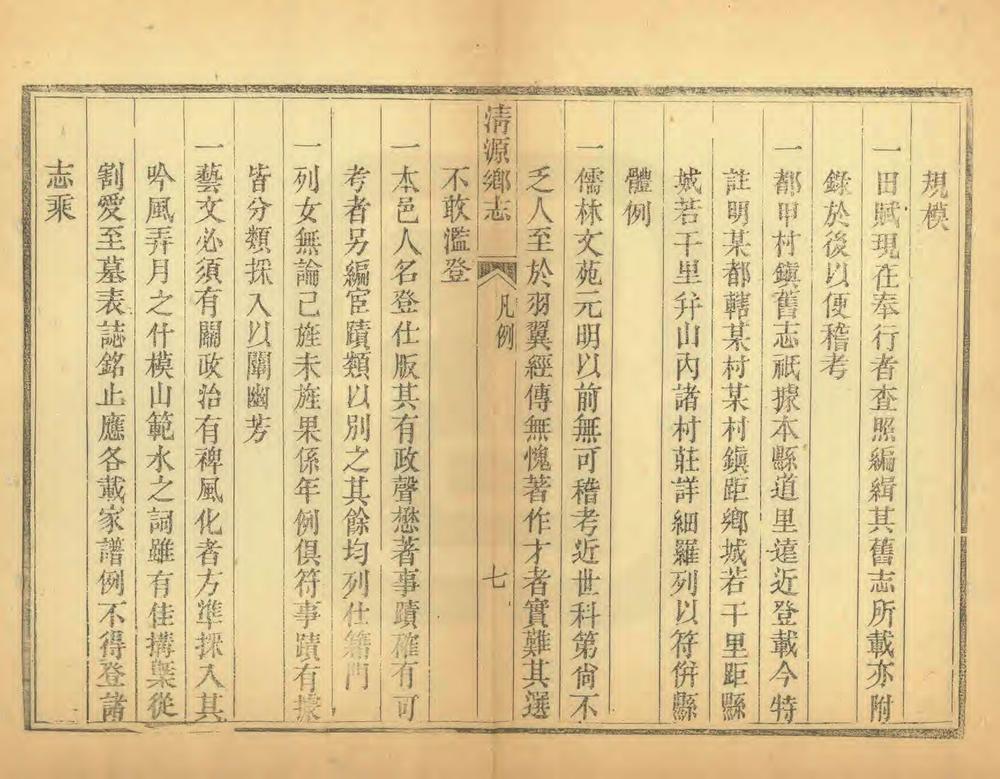 規模
一田賦現在奉行者查照編緝其舊志所載亦附
錄於後以便稽考
一都甲村鎮舊志祇據本縣道里遠近登載今特
註明某都轄某村某村鎮距鄉城若干里距縣
城若干里幷山內諸村莊詳細羅列以符併縣
體例
一儒林文苑元明以前無可稽考近世科第尙不
乏人至於羽翼經傳無愧著作才者實難其選
清源鄉志
凡例
七
不敢濫登
一本邑人名登仕版其有政聲懋著事蹟確有可
考者另編宦蹟類以別之其餘均列仕籍門
一列女無論已旌未旌果係年例俱符事蹟有據
皆分類採入以闡幽芳
一藝文必須有關政治有裨風化者方準採入其
吟風弄月之什模山範水之詞雖有佳搆槩從
割愛至墓表誌銘止應各載家譜例不得登諸
志乘